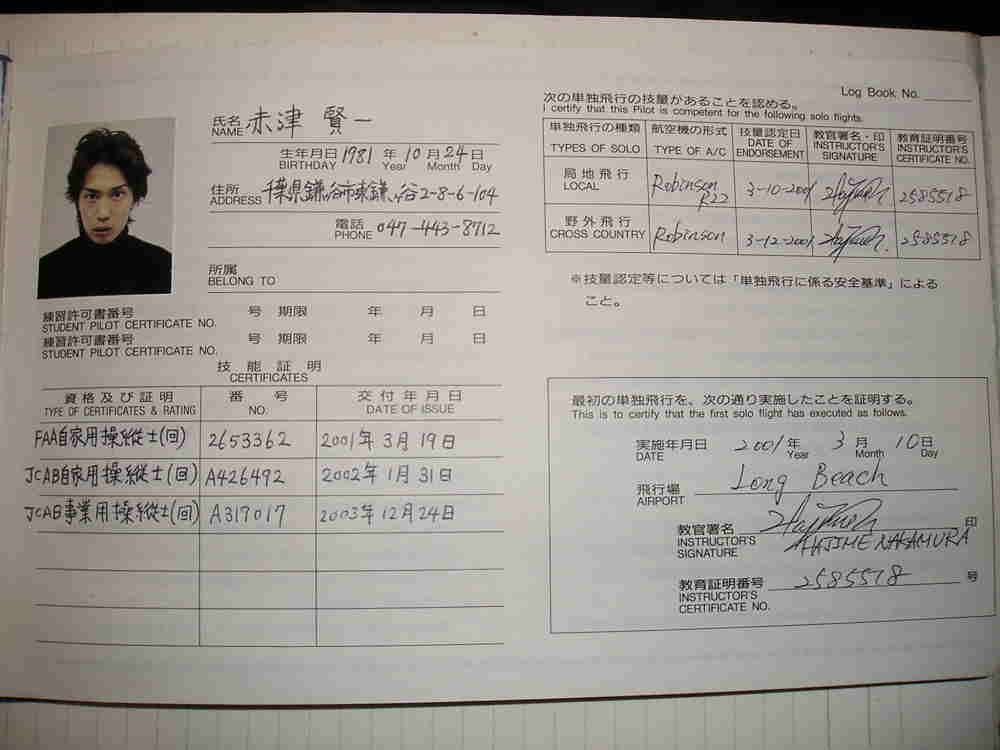 氏名 赤津 賢一
NAME
生年月日 1981 年 10 月 24 日
BIRTHDAY Year Month Day
住所 千葉県鎌谷市東鎌谷2-8-6-104
ADDRESS
電話 047-443-8712
PHONE
所属
BELONG TO
練習許可書番号 号 期限 年 月 日
STUDENT PILOT CERTIFICATE NO.
練習許可書番号 号 期限 年 月 日
STUDENT PILOT CERTIFICATE NO.
技能証明
CERTIFICATES
資格及び証明 番号 交付年月日
TYPE OF CERTIFICATES & RATING NO. DATE OF ISSUE
FAA自家用操縦士(回) 2653362 2001年3月19日
JCAB自家用操縦士(回) A426492 2002年1月31日
JCAB事業用操縦士(回) A319017 2003年12月24日
Log Book No.
次の単独飛行の技量があることを認める。
I certify that this Pilot is competent for the following solo flights.
単独飛行の種類 航空機の形式 技量認定日 教官署名・印 教育証明番号
TYPES OF SOLO TYPE OF A/C DATE OF ENDORSEMENT INSTRUCTOR'S SIGNATURE INSTRUCTOR'S CERTIFICATE NO.
局地飛行 Robinson R22 3-10-2001 2585518
LOCAL
野外飛行 Robinson 3-12-2001 2585518
CROSS COUNTRY
※技量認定等については「単独飛行に係る安全基準」による
こと。
最初の単独飛行を、次の通り実施したことを証明する。
This is to certify that the first solo flight has executed as follows.
実施年月日 2001 年 3 月 10 日
DATE Year Month Day
飛行場 Long Beach
AIRPORT
教官署名 印
INSTRUCTOR'S HAJIME NAKAMURA
SIGNATURE
教育証明番号 2585518 号
INSTRUCTOR'S
CERTIFICATE NO.